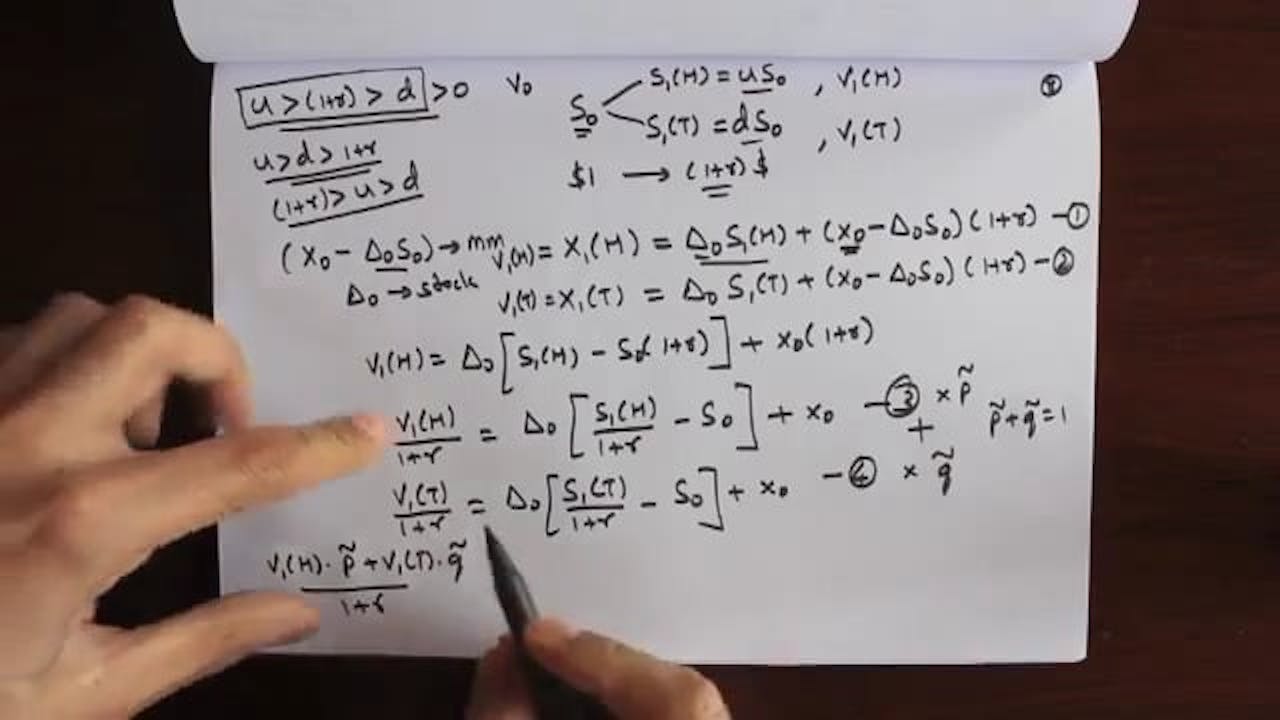 u > (1+r) > d > 0   V₀   S₀   S₁(H) = uS₀ , V₁(H)   ②
S₁(T) = dS₀ , V₁(T)
u > d > 1+r
$1 → (1+r) $
(1+r) > u > d
(X₀ - Δ₀S₀) → mm   V₁(H) = X₁(H) = Δ₀S₁(H) + (X₀ - Δ₀S₀)(1+r) - ①
Δ₀ → stock   V₁(T) = X₁(T) = Δ₀ S₁(T) + (X₀ - Δ₀S₀)(1+r) - ②
V₁(H) = Δ₀ [S₁(H) - S₀(1+r)] + X₀(1+r)
V₁(H)/1+r = Δ₀ [S₁(H)/1+r - S₀] + X₀ - ③ × p̃
+   p̃ + q̃ = 1
V₁(T)/1+r = Δ₀ [S₁(T)/1+r - S₀] + X₀ - ④ × q̃
V₁(H)·p̃ + V₁(T)·q̃
1+r